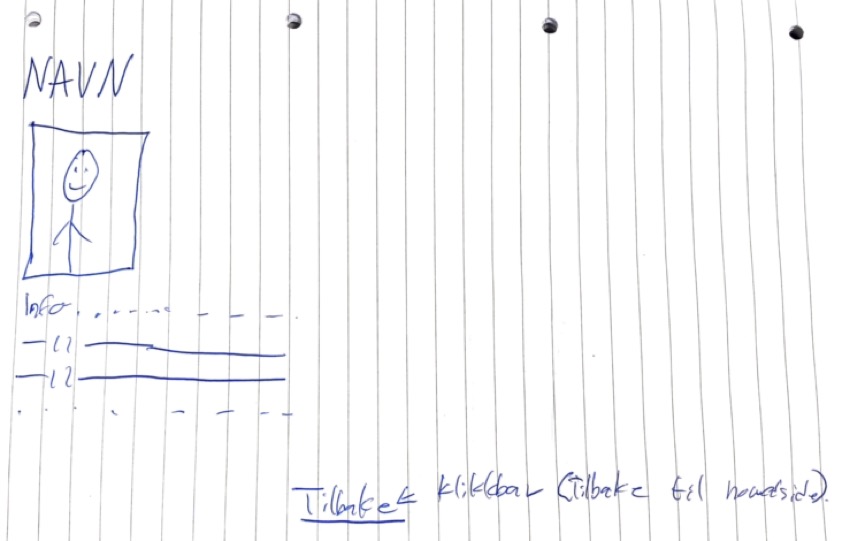 NAVN
Info
Tilbake klikkbar (Tilbake til hovedside).